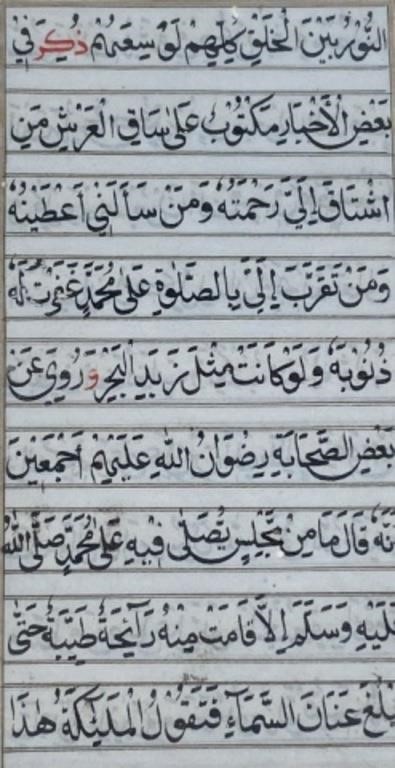 النُّورُ بَيْنَ الْخَلْقِ كُلِّهِمْ لَوَسِعَهُمْ ذُكِرَ فِي
بَعْضِ الْأَخْبَارِ مَكْتُوْبٌ عَلٰى سَاقِ الْعَرْشِ مَنِ
اشْتَاقَ اِلَيَّ رَحِمْتُهٗ وَمَنْ سَأَلَنِيْ اَعْطَيْتُهٗ
وَمَنْ تَقَرَّبَ اِلَيَّ بِالصَّلٰوةِ عَلٰى مُحَمَّدٍ غَفَرْتُ لَهٗ
ذُنُوْبَهٗ وَلَوْ كَانَتْ مِثْلَ زَبَدِ الْبَحْرِ وَرُوِيَ عَنْ
بَعْضِ الصَّحَابَةِ رِضْوَانُ اللّٰهِ عَلَيْهِمْ اَجْمَعِيْنَ
نَّهٗ قَالَ مَا مِنْ مَجْلِسٍ يُصَلّٰى فِيْهِ عَلٰى مُحَمَّدٍ صَلَّى اللّٰهُ
عَلَيْهِ وَسَلَّمَ اِلَّا قَامَتْ مِنْهُ رَآئِحَةٌ طَيِّبَةٌ حَتّٰى
يَبْلُغَ عَنَانَ السَّمَآءِ فَتَقُوْلُ الْمَلٰٓئِكَةُ هٰذَا